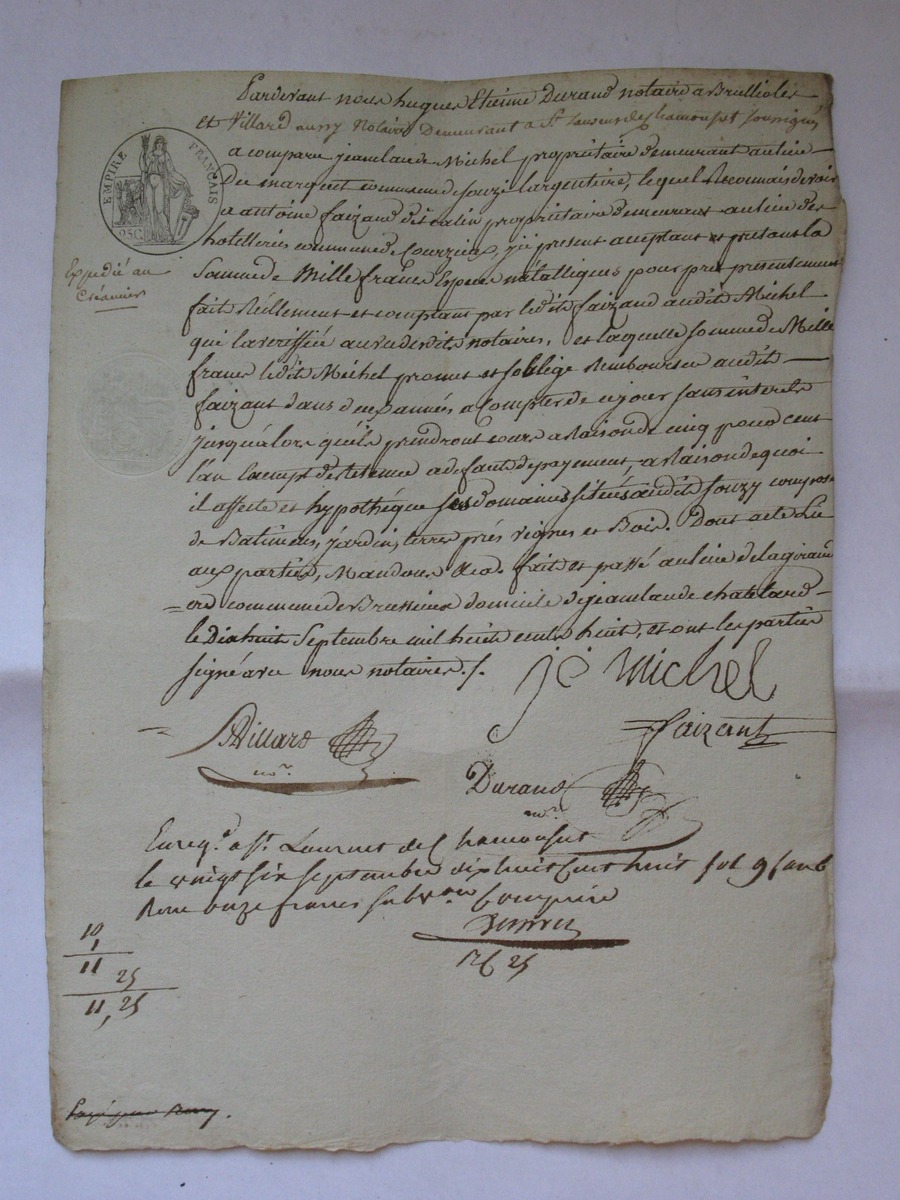 Pardevant nous hugues Etienne Durand notaire a Brullioles
et Villard aussy Notaire Demeurant a St Laurent de Chamousset soussignés
a comparu jeanclaude Michel propriétaire demeurant au lieu
Du marquet commune de Souzi Largentiere, lequel Reconnais devoir
a antoine faizand dit catin, propriétaire demeurant au lieu des
hotelleries commune de Courzieu, ici present acceptant et
Somme de Mille francs Especes métalliques pour pret présentement
fait Réellement et comptant par ledit faizand audit Michel
qui la veriffiée au vu desdits notaires, et laquelle somme de Mille
francs ledit Michel promet et soblige Rembourser audit
faizant dans deux années a Compter de ce jour sans interets
jusqualors quils prendront cours a Raison de cinq pour cent
lan Exempt de Retenue a defaut de payement, a Raison de quoi
il affecte et hypothéque ses domaines situés audit Souzy composé
de Batimens, jardin, terres prés vignes et Bois. Dont acte Lu
aux parties, Mandons &ca. fait et passé au lieu de la giraud
=ere commune de Brussieux domicile de jeanclaude chatelard
le dixhuit Septembre mil huit cents huit, et ont les parties
signé avec nous notaires ./.
EMPIRE FRANÇAIS
25 C
Expedié au
Créancier
jc michel
Villard
nore
faizant
Durand
nore
Enregé a St Laurent de Chamousset
le vingt six septembre dix huit Cent huit fol 9
Recu onze francs subvon Comprise
10
1
11
25
11,25